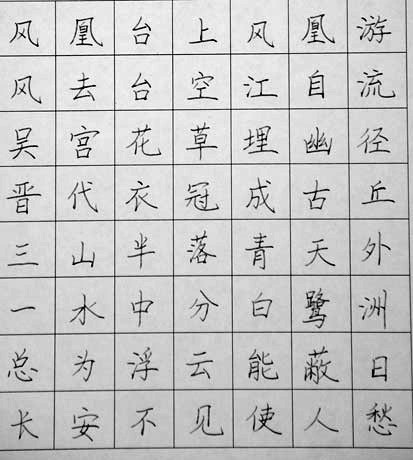 风凰台上风凰游
风去台空江自流
吴宫花草埋幽径
晋代衣冠成古丘
三山半落青天外
一水中分白鹭洲
总为浮云能蔽日
长安不见使人愁